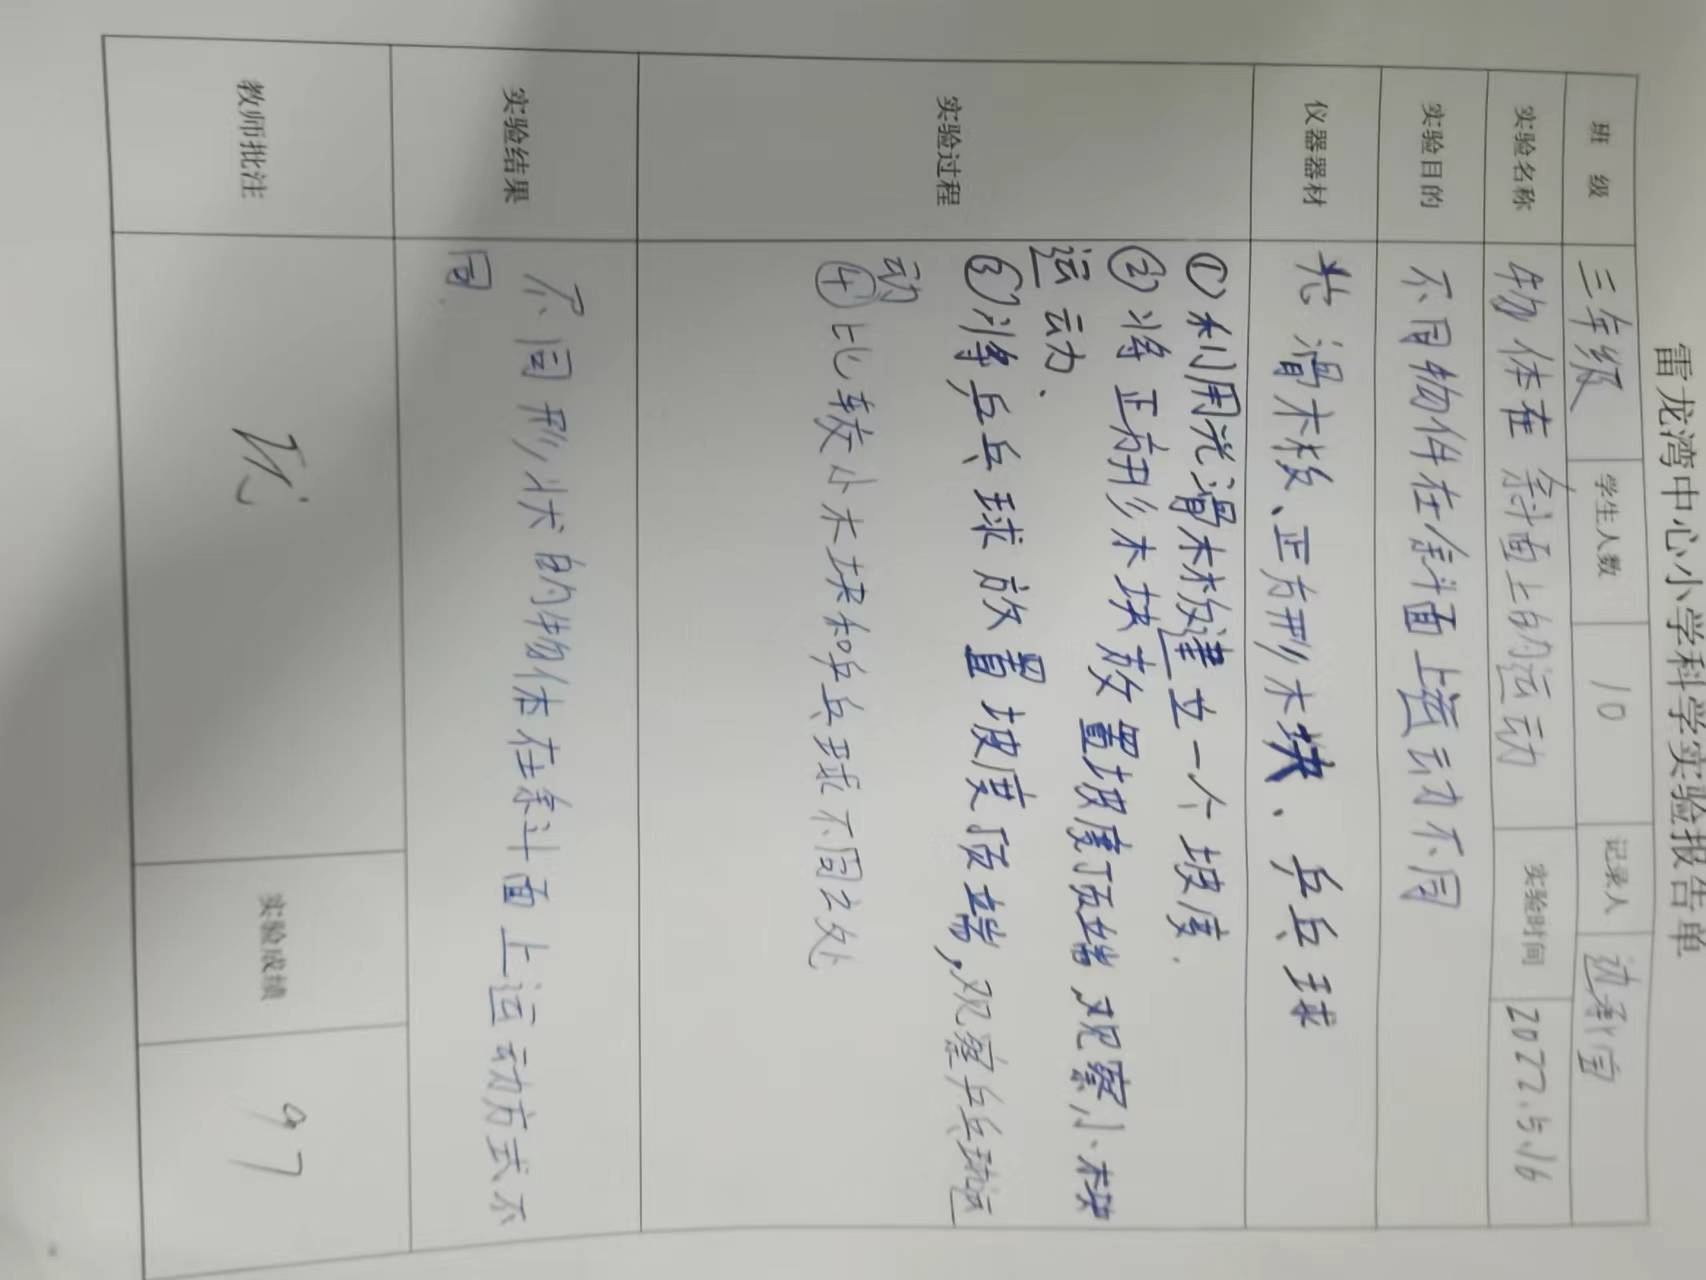 雷龙湾中心小学科学实验报告单
班 级 三年级 学生人数 10 记录人
实验名称 物体在斜面上的运动 实验时间 2022.5.16
实验目的 不同物件在斜面上运动不同
仪器器材 光滑木板、正方形木块、乒乓球
实验过程
①利用光滑木板建立一个坡度.
②将正方形木块放置坡度顶端观察小木块
运动.
③将乒乓球放置坡度顶端,观察乒乓球运
动
④比较小木块和乒乓球不同之处
实验结果
不同形状的物体在斜面上运动方式不
同.
教师批注 优 实验成绩 97